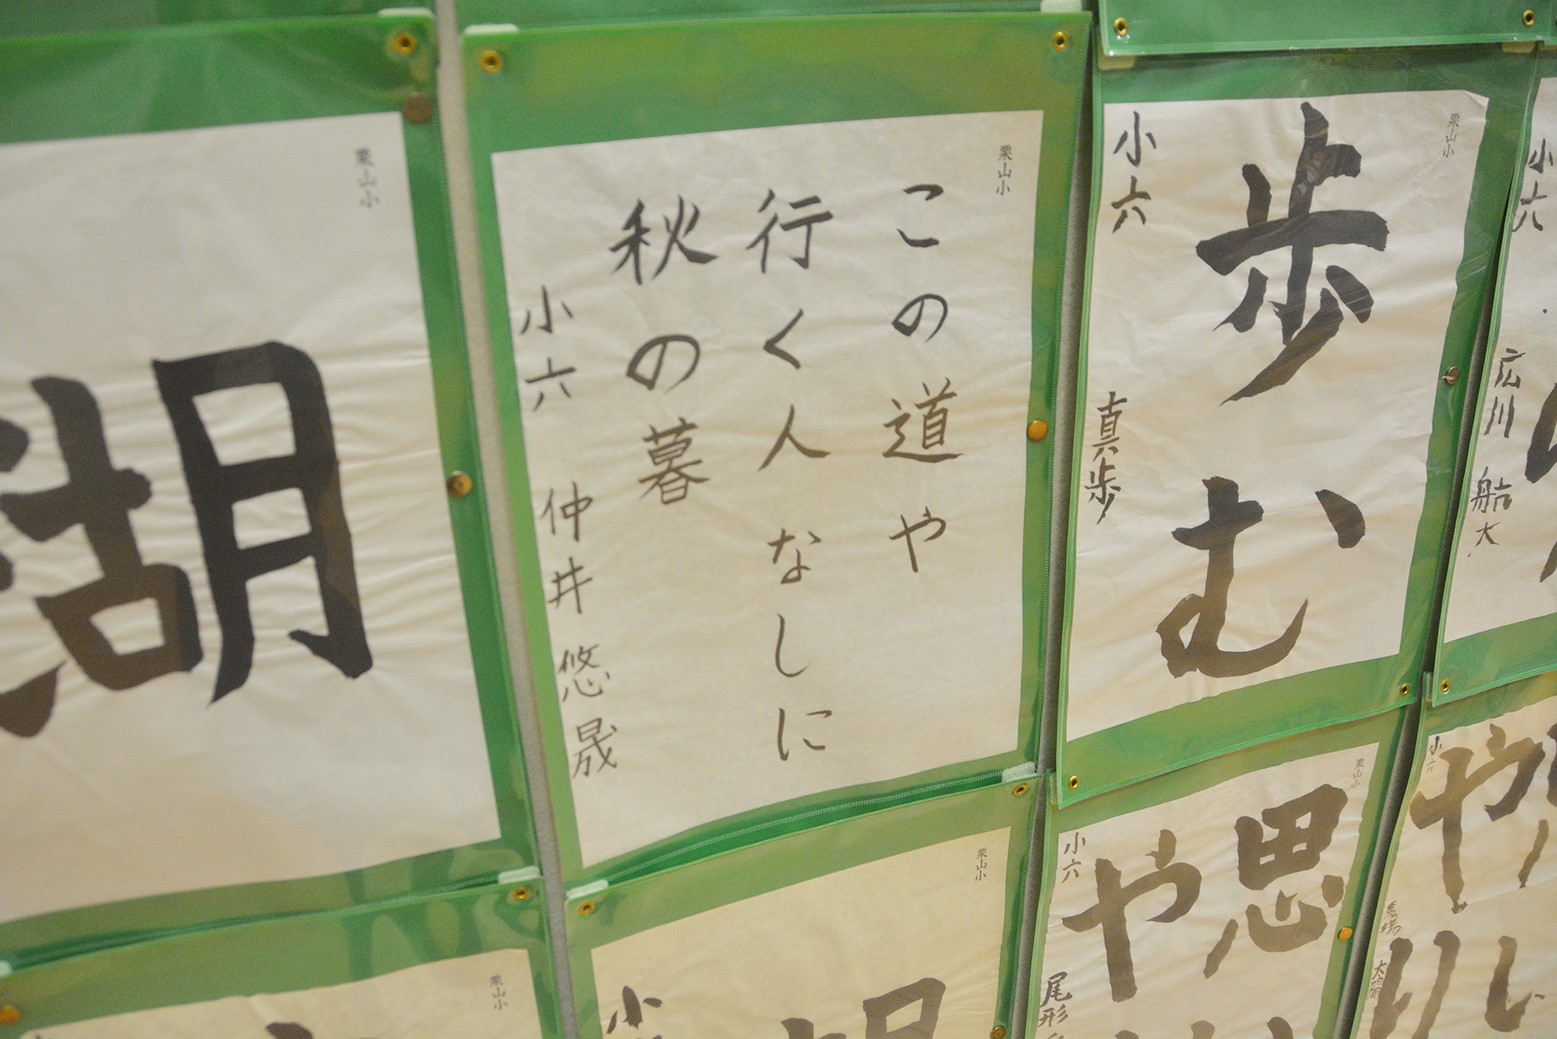 栗山小
湖
栗山小
この道や
行く人なしに
秋の暮
小六 仲井 悠晟
栗山小
歩む
小六 真歩
小六 広川 航大
栗山小
小
栗山小
栗山小
思
や
小六 尾形
小六